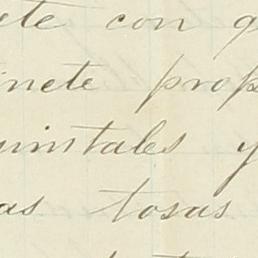 ete con q
inete prop
uintales y
as tosas